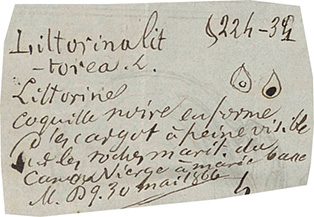 Littorina lit
-torea. L.
Littorine
coquille noire en forme
d'escargot à peine visible
les rochers du
Vierge a marée basse
M. P. 9. 30 mai 1866